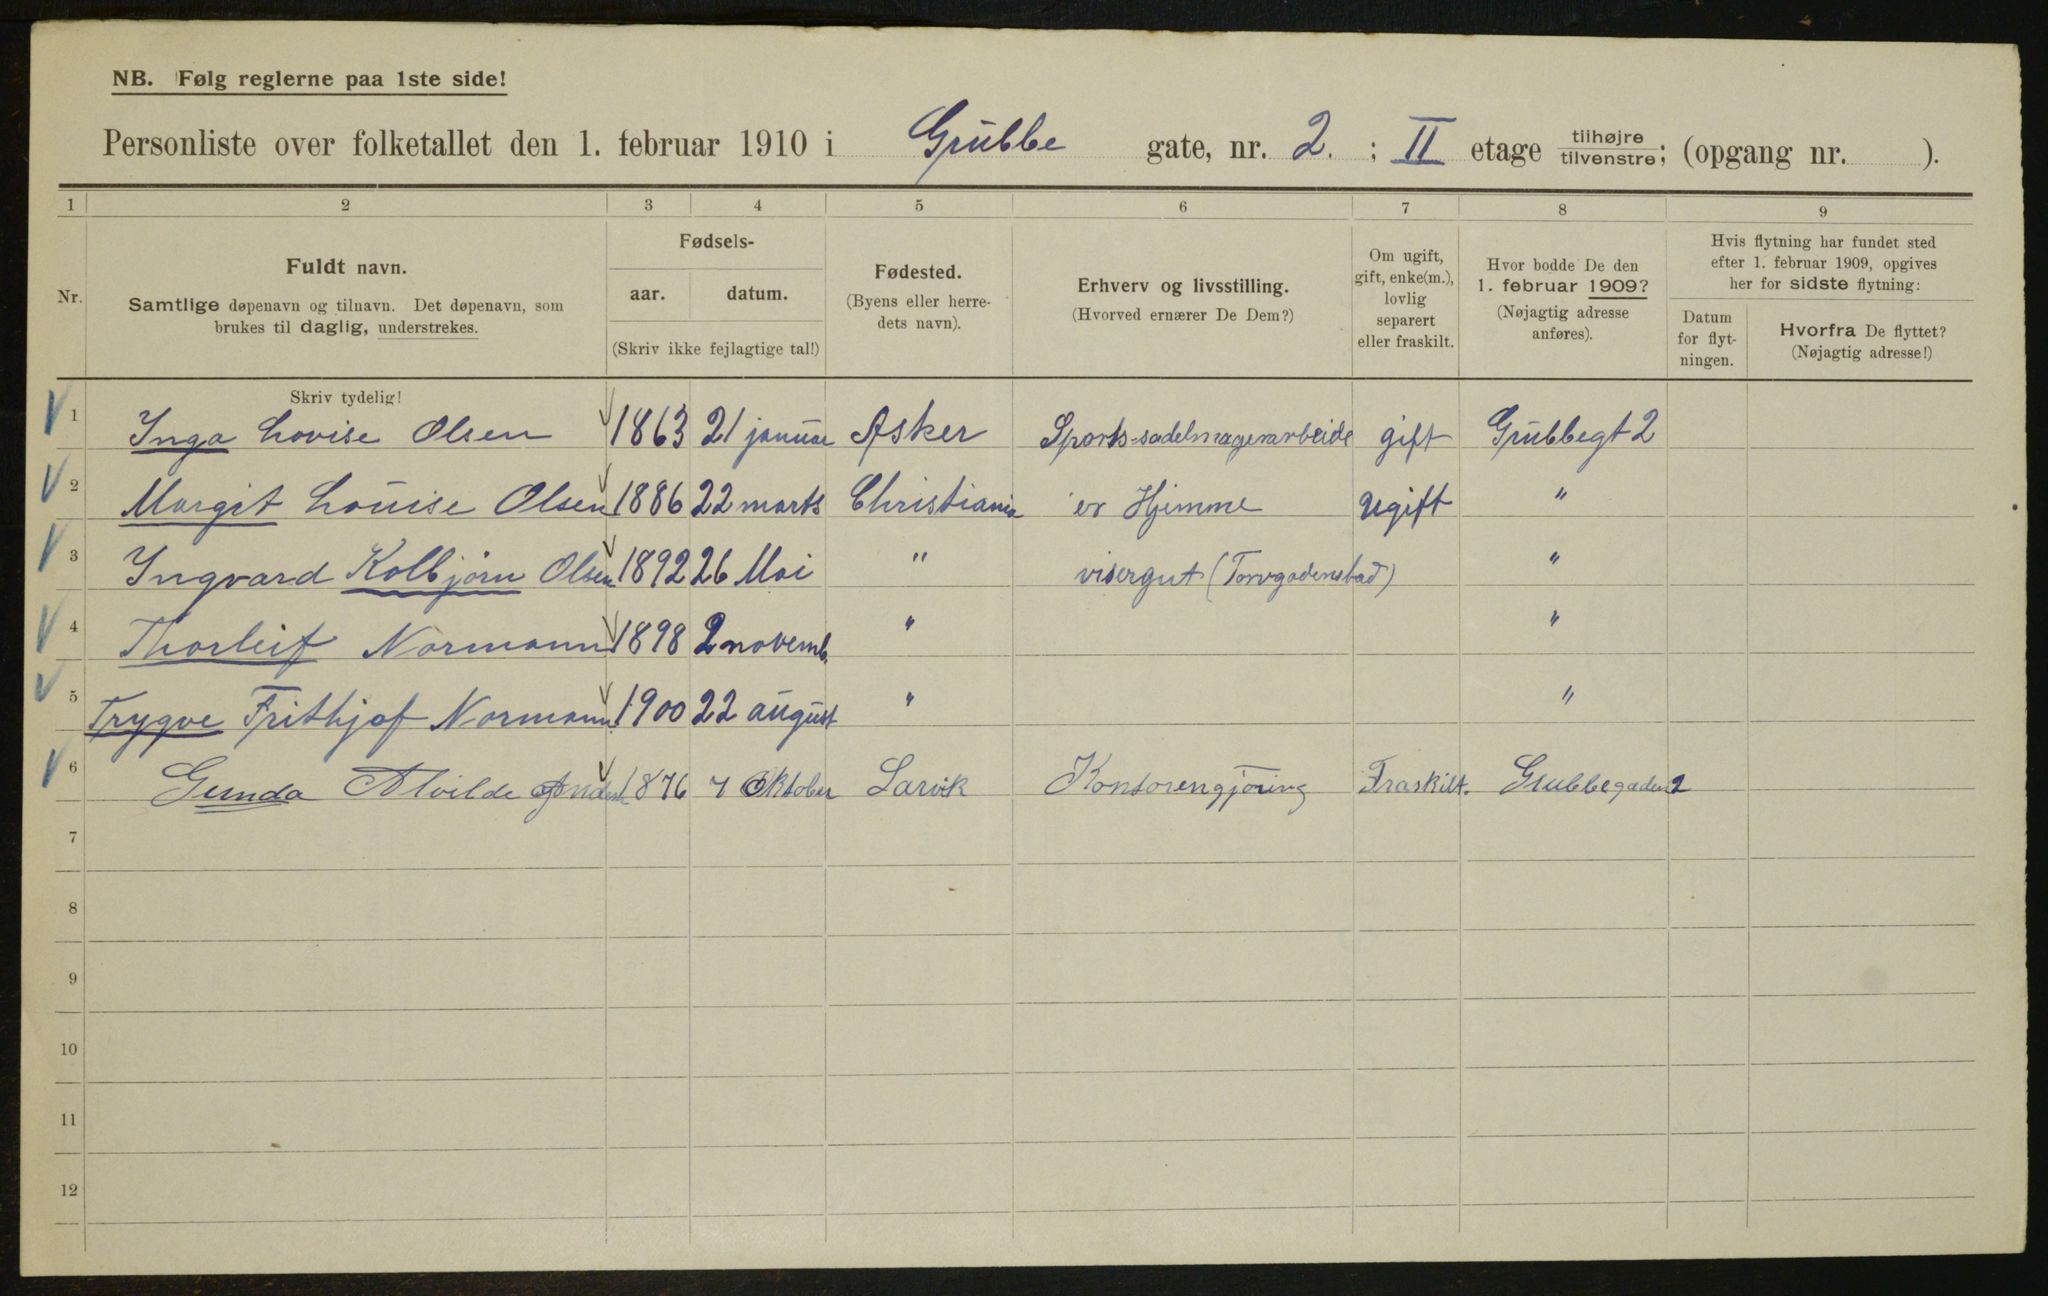 NB. Følg reglerne paa 1ste side!
Personliste over folketallet den 1. februar 1910 i Grubbe gate, nr. 2. ; II etage tilhøjre tilvenstre; (opgang nr. ).
1 2 3 4 5 6 7 8 9
Nr.
Fuldt navn.
Samtlige døpenavn og tilnavn. Det døpenavn, som
brukes til daglig, understrekes.
Fødsels-
aar. datum.
(Skriv ikke fejlagtige tal!)
Fødested.
(Byens eller herre-
dets navn).
Erhverv og livsstilling.
(Hvorved ernærer De Dem?)
Om ugift,
gift, enke(m.),
lovlig
separert
eller fraskilt.
Hvor bodde De den
1. februar 1909?
(Nøjagtig adresse
anføres).
Hvis flytning har fundet sted
efter 1. februar 1909, opgives
her for sidste flytning:
Datum
for flyt-
ningen.
Hvorfra De flyttet?
(Nøjagtig adresse!)
Skriv tydelig!
1 Inga Lovise Olsen 1863 21 januar Asker Sports-sadelmagerarbeide gift Grubbegt 2
2 Margit Louise Olsen 1886 22 marts Christiania er Hjemme Ugift "
3 Ingvard Kolbjørn Olsen 1892 26 Mai " visergut (Torvgadensbad) "
4 Thorleif Normann 1898 2 novemb. " "
5 Trygve Frithjof Normann 1900 22 august " "
6 Gunda Alvilde 1876 7 Oktober Larvik Kontorengjøring Fraskilt. Grubbegaden 2
7
8
9
10
11
12